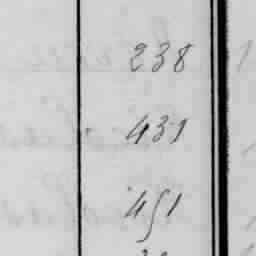 238
431
451